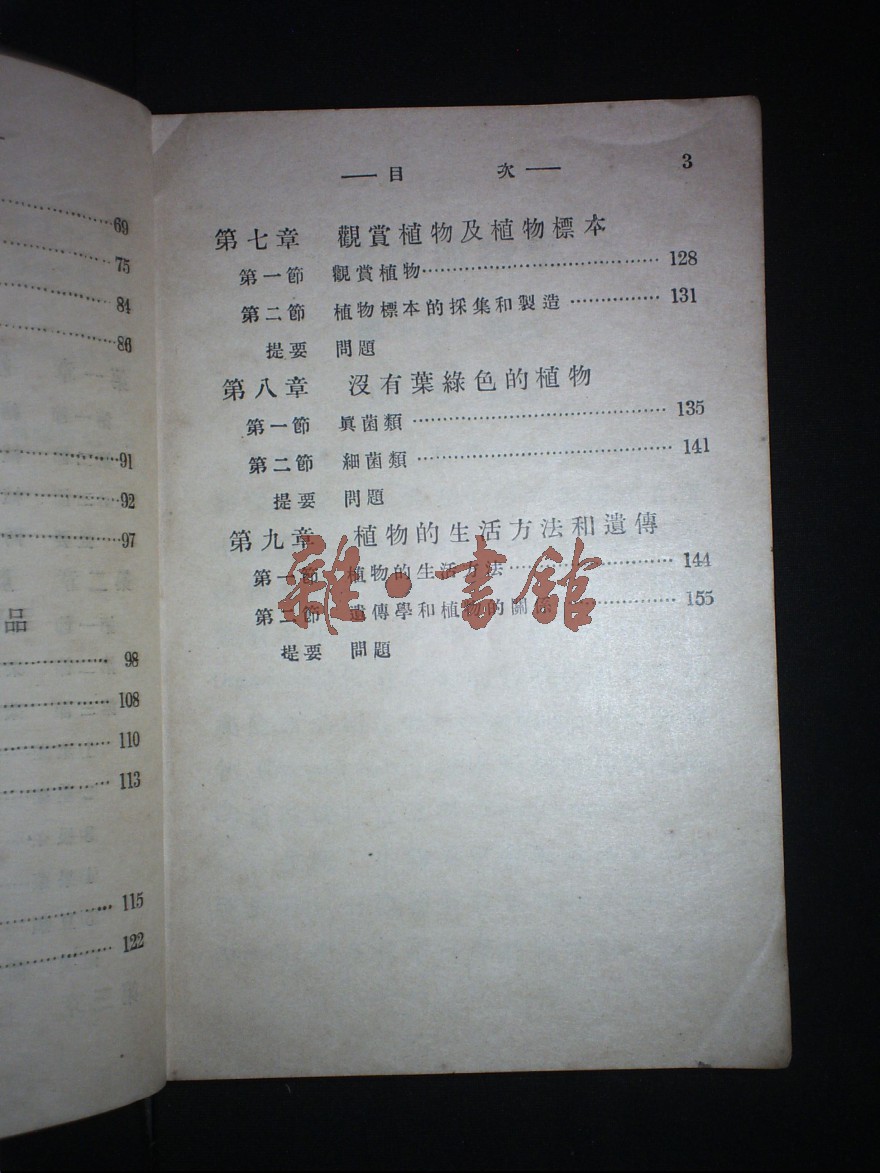 69
75
84
86
91
92
97
品
98
108
110
113
115
122
——目 次—— 3
第七章 觀賞植物及植物標本
第一節 觀賞植物…………………………………128
第二節 植物標本的採集和製造……………131
提要 問題
第八章 沒有葉綠色的植物
第一節 眞菌類……………………………………135
第二節 細菌類……………………………………141
提要 問題
第九章 植物的生活方法和遺傳
第一節 植物的生活方法………………………144
第二節 遺傳學和植物的關係…………………155
提要 問題
雜·書館